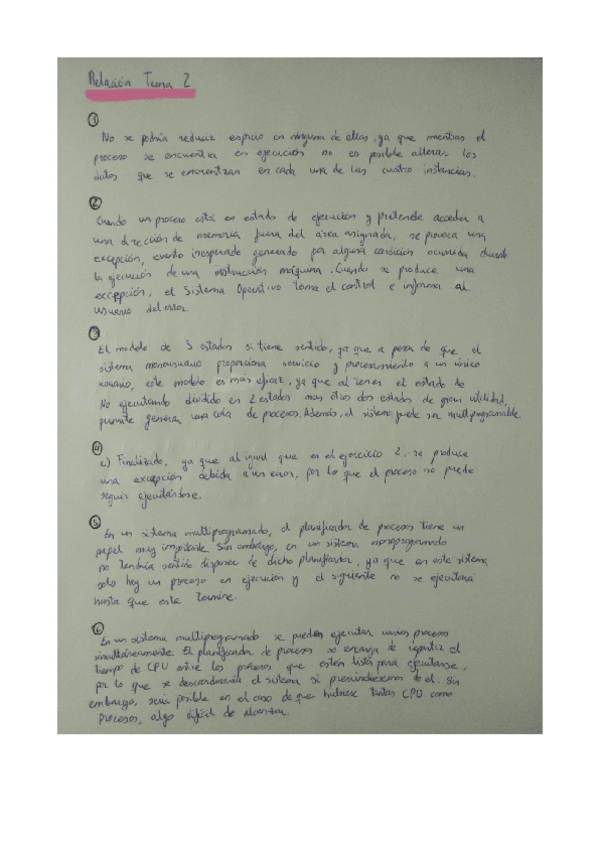 Relación Tema 2
1
No se podría reducir espacio en ninguna de ellas, ya que mientras el
proceso se encuentra en ejecución no es posible alterar los
datos que se encuentran en cada una de las cuatro instancias.
2
Cuando un proceso está en estado de ejecución y pretende acceder a
una dirección de memoria fuera del área asignada, se provoca una
excepción, evento inesperado generado por alguna condición ocurrida durante
la ejecución de una instrucción máquina. Cuando se produce una
excepción, el Sistema Operativo toma el control e informa al
usuario del error.
3
El modelo de 5 estados si tiene sentido, ya que a pesar de que el
sistema monousuario proporciona servicio y procesamiento a un único
usuario, este modelo es más eficaz, ya que al tener el estado de
No ejecutando dividido en 2 estados mas otros dos estados de gran utilidad,
permite generar una cola de procesos. Además, el sistema puede ser multiprogramable
4
c) Finalizado, ya que al igual que en el ejercicio 2, se produce
una excepción debida a un error, por lo que el proceso no puede
seguir ejecutándose.
5
En un sistema multiprogramado, el planificador de procesos tiene un
papel muy importante. Sin embargo, en un sistema monoprogramado
no tendría sentido disponer de dicho planificador, ya que en este sistema
solo hay un proceso en ejecución y el siguiente no se ejecutará
hasta que este termine.
6
En un sistema multiprogramado se pueden ejecutar varios procesos
simultáneamente. El planificador de procesos se encarga de repartir el
tiempo de CPU entre los procesos que estén listos para ejecutarse,
por lo que se descoordinaría el sistema si prescindiésemos de él. Sin
embargo, sería posible en el caso de que hubiese tantas CPU como
procesos, algo difícil de alcanzar.